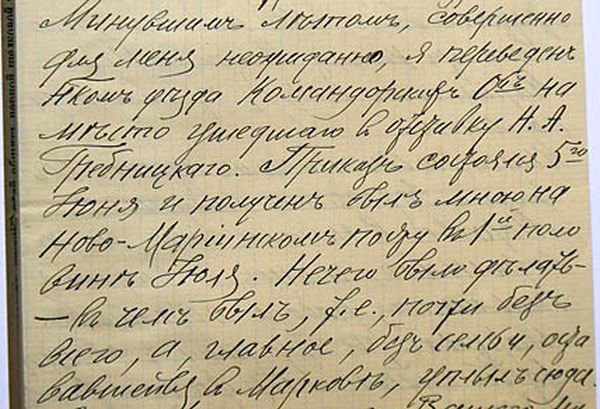 Минувшимъ лѣтомъ, совершенно
для меня неожиданно, я переведенъ
Нкомъ уѣзда Командорскихъ Овъ на
мѣсто ушедшаго въ отставку Н. А.
Гребницкаго. Приказъ состоялся 5го
Іюня и полученъ былъ мною на
Ново-Маріинскомъ посту въ 1й поло
винѣ Іюля. Нечего было дѣлать-
— въ чемъ былъ, т.е., почти безъ
всего, а, главное, безъ семьи, оста
вавшейся въ Марковѣ, уплылъ сюда.